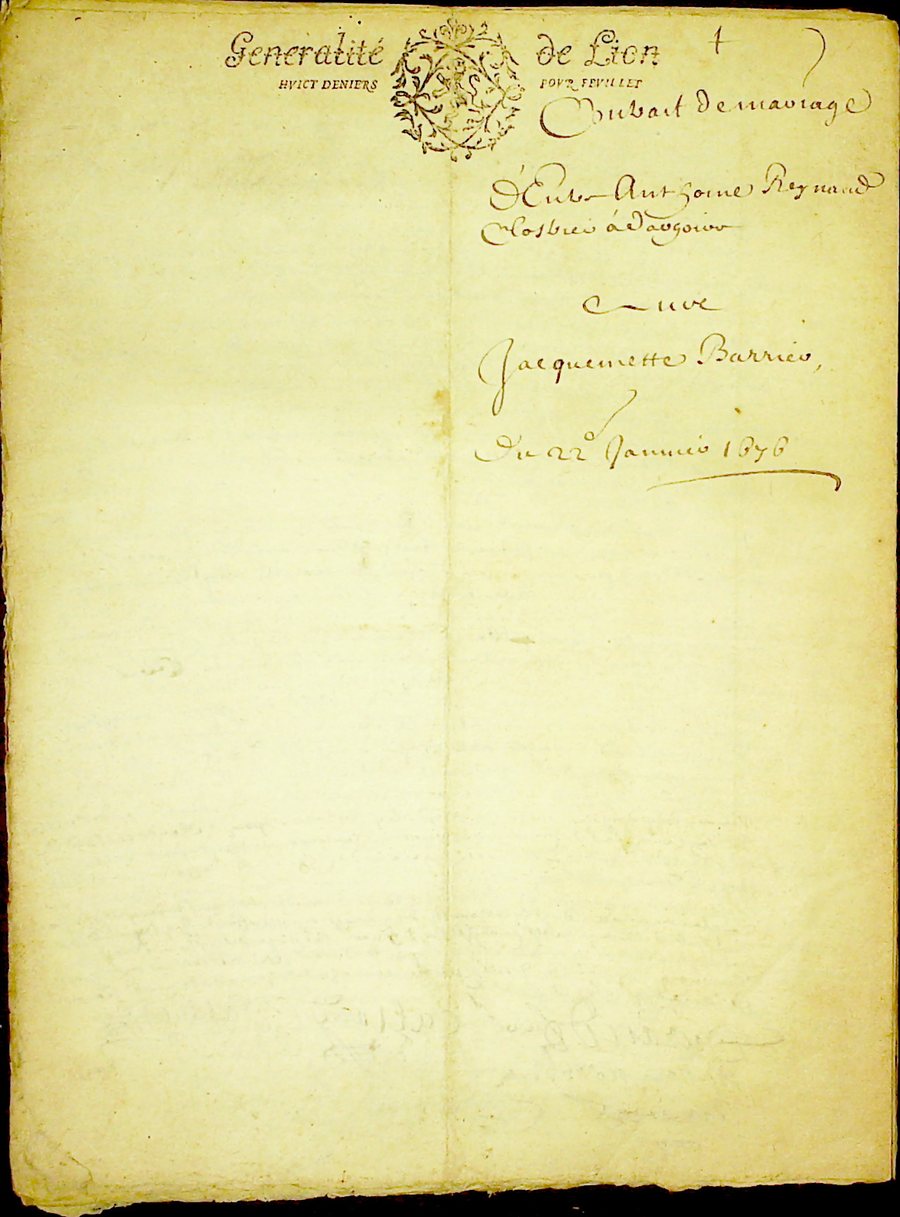 Generalité de Lion
HVICT DENIERS POVR FEVILLET
Contrait de mariage
d'Entre Anthoine Reynaud
à Dargoire
Jacquemette Barrier,
Du 22e Januier 1676